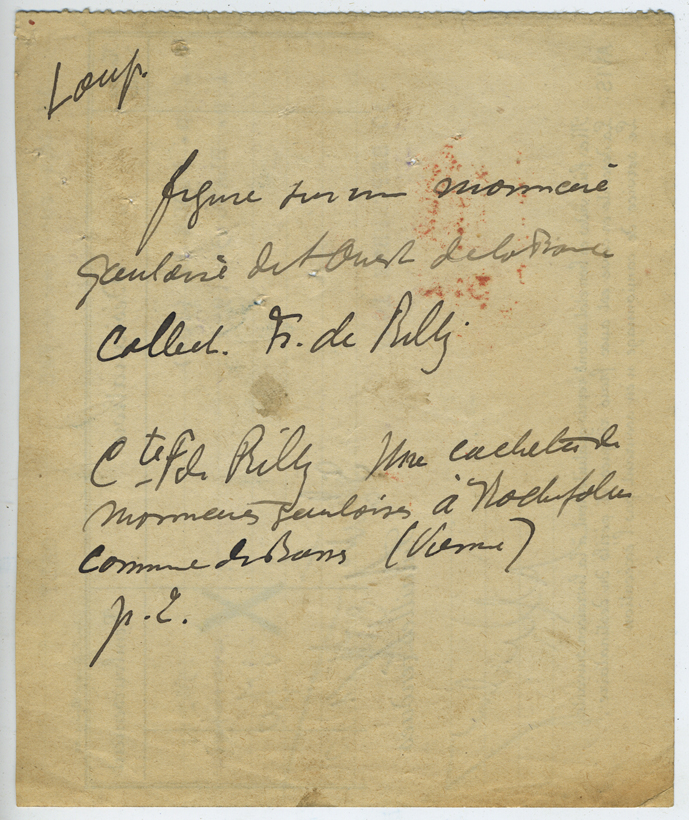 Loup.
figure sur une monnaie
gauloise de l'Ouest de la France
Collect. Fr. de Rilly
Cte F de Rilly Une cachette de
monnaies gauloises à Rochefolle
Commune de (Vienne)
p. 2.